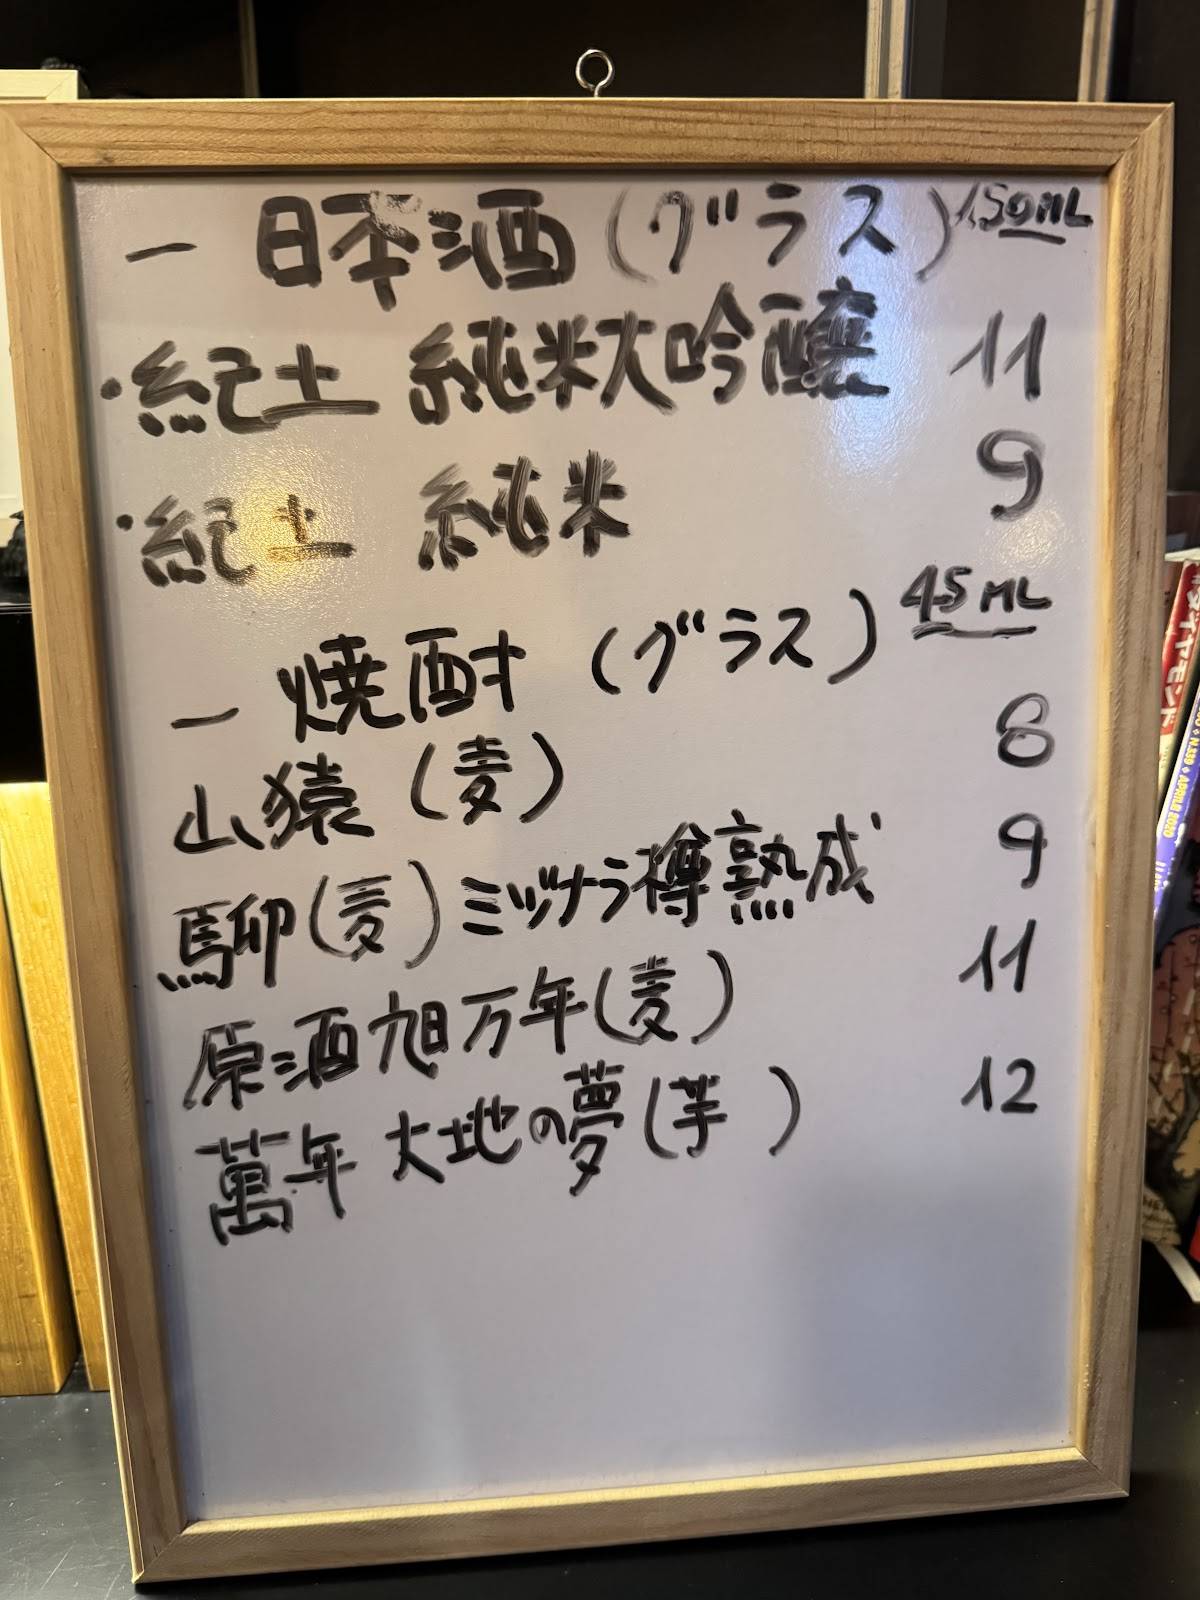 ー 日本酒 (グラス) 150ML
・紀土 純米大吟醸 11
・紀土 純米 9
ー 焼酎 (グラス) 45ML
山猿 (麦) 8
(麦) ミヅナラ樽熟成 9
原酒 旭万年 (麦) 11
萬年 大地の夢 (芋) 12
ダイヤモンド
N.139 ◆ APRILE 2020